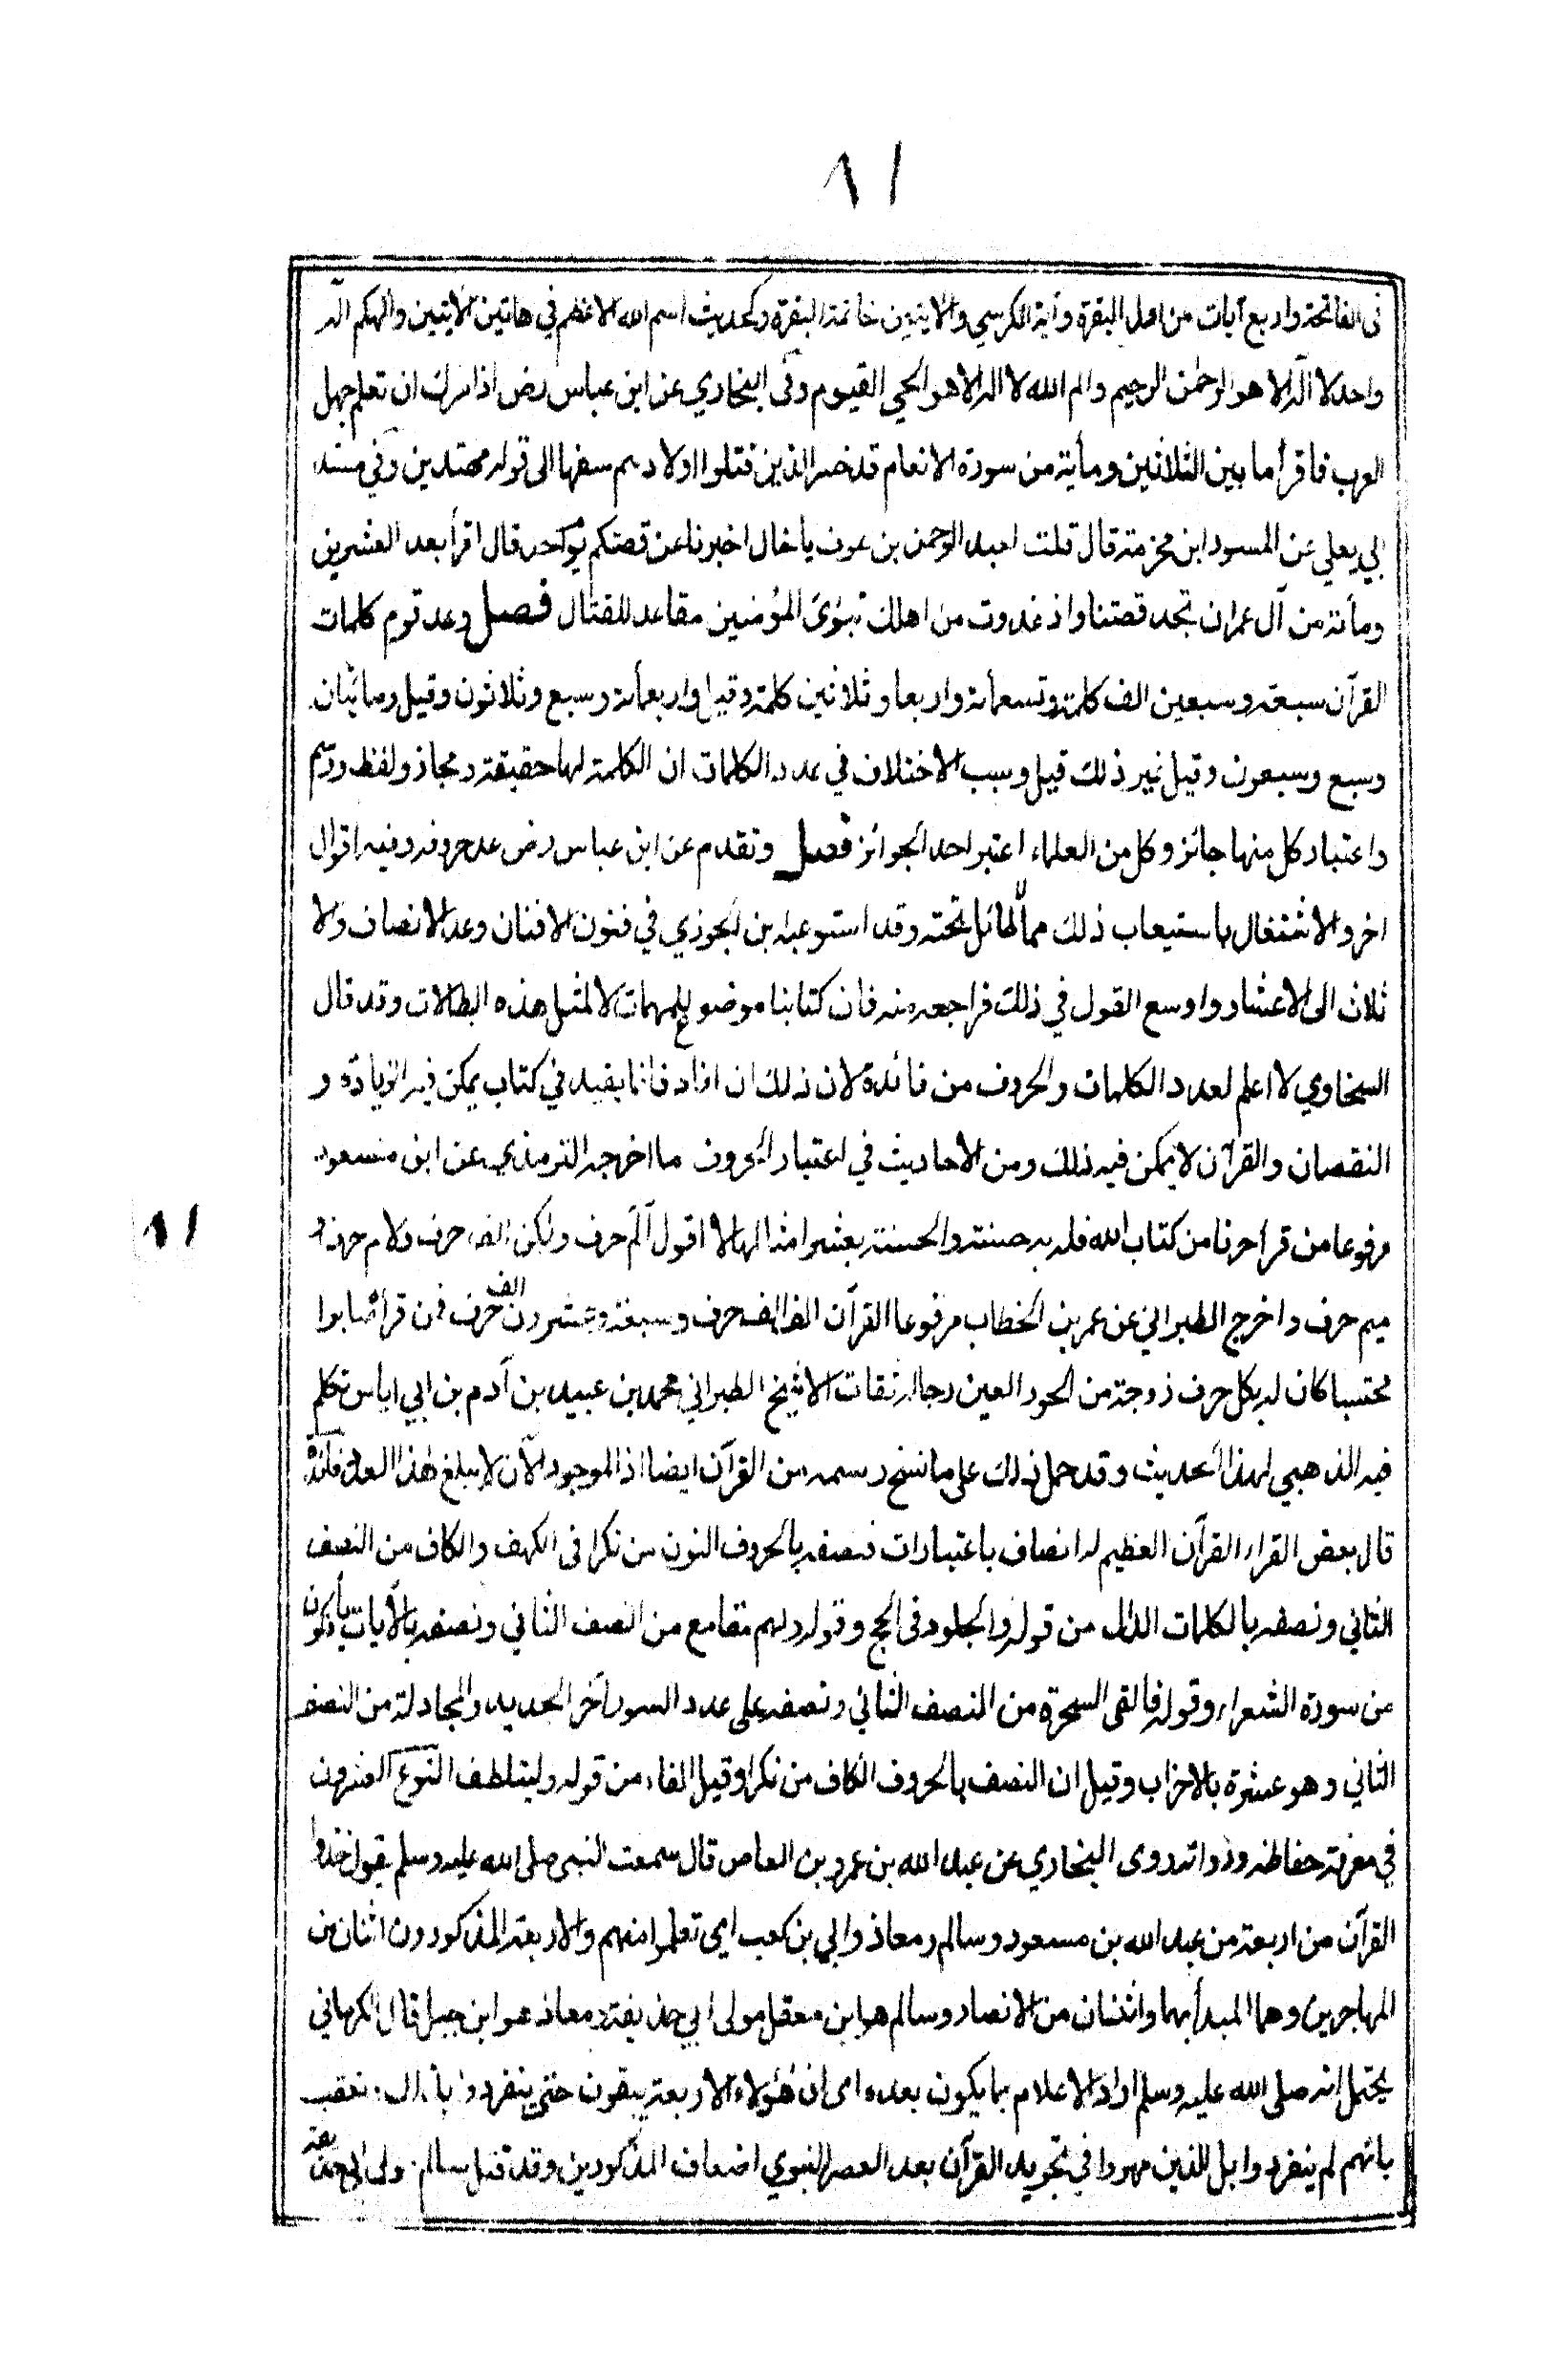 ٨١
فى الفاتحة واربع آيات من اول البقرة وآية الكرسي والآيتين خاتمة البقرة وكحديث اسم الله الاعظم في هاتين الآيتين والهكم اله
واحد لا اله الا هو الرحمن الرحيم والم الله لا اله الا هو الحي القيوم وفى البخاري عن ابن عباس رض اذا سرك ان تعلم جهل
العرب فاقرأ ما بين الثلاثين ومأية من سورة الانعام قد خسر الذين قتلوا اولادهم سفها الى قوله مهتدين وفي مسند
ابي يعلي عن المسور ابن مخرمة قال قلت لعبد الرحمن بن عوف يا خال اخبرنا عن قصتكم يوم احد قال اقرأ بعد العشرين
ومأئة من آل عمران تجد قصتنا واذ غدوت من اهلك تبوئ المؤمنين مقاعد للقتال فصل وعد قوم كلمات
القرآن سبعة وسبعين الف كلمة وتسعمأئة واربعا وثلاثين كلمة وقيل واربعمأئة وسبع وثلاثون وقيل ومائتان
وسبع وسبعون وقيل غير ذلك قيل وسبب الاختلاف في عدد الكلمات ان الكلمة لها حقيقة ومجاز ولفظ ورسم
واعتبار كل منها جائز وكل من العلماء اعتبر احد الجوائز فصل وتقدم عن ابن عباس رض عد حروفه وفيه اقوال
اخر والاشتغال باستيعاب ذلك مما لا طائل تحته وقد استوعبه بن الجوزي في فنون الافنان وعد الانصاف والا
ثلاث الى الاعشار واوسع القول في ذلك فراجعه منه فان كتابنا موضوع للمهمات لا لمثل هذه البطالات وقد قال
السخاوي لا اعلم لعدد الكلمات والحروف من فائدة لان ذلك ان افاد فانما يفيد في كتاب يمكن فيه الزيادة و
النقصان والقرآن لا يمكن فيه ذلك ومن الاحاديث في اعتبار الحروف ما اخرجه الترمذي عن ابن مسعود
مرفوعا من قرأ حرفا من كتاب الله فله به حسنة والحسنة بعشر امثالها لا اقول آلم حرف ولكن الف حرف ولام حرف و
٨١
ميم حرف واخرج الطبراني عن عمر بن الخطاب مرفوعا القرآن الف الف حرف وسبعة وعشرون الف حرف فمن قرأه صابرا
محتسبا كان له بكل حرف زوجة من الحور العين رجاله ثقات الا شيخ الطبراني محمد بن عبيد بن آدم بن ابي اياس تكلم
فيه الذهبي لهذا الحديث وقد حمل ذلك على ما نسخ رسمه من القرآن ايضا اذ الموجود الآن لا يبلغ هذا العدد فائدة
قال بعض القراء القرآن العظيم له انصاف باعتبارات فنصفه بالحروف النون من نكرا فى الكهف والكاف من النصف
الثاني ونصفه بالكلمات الدال من قوله والجلود فى الحج وقوله ولهم مقامع من النصف الثاني ونصفه بالآيات يأفكون
من سورة الشعراء وقوله فالقى السحرة من النصف الثاني ونصفه على عدد السور آخر الحديد والمجادلة من النصف
الثاني وهو عشرة بالاحزاب وقيل ان النصف بالحروف الكاف من نكرا وقيل الفاء من قوله وليتلطف النوع العشرون
في معرفة حفاظه ورواته روى البخاري عن عبد الله بن عمرو بن العاص قال سمعت النبى صلى الله عليه وسلم يقول خذوا
القرآن من اربعة من عبد الله بن مسعود وسالم ومعاذ وابي بن كعب اي تعلموا منهم والاربعة المذكورون اثنان من
المهاجرين وهما المبدأ بهما واثنان من الانصار وسالم هو ابن معقل مولى ابي حذيفة ومعاذ هو ابن جبل قال الكرماني
يحتمل انه صلى الله عليه وسلم اراد الاعلام بما يكون بعده اى ان هؤلاء الاربعة يبقون حتى ينفردوا بذلك وتعقب
بانهم لم ينفردوا بل الذين مهروا في تجويد القرآن بعد العصر النبوي اضعاف المذكورين وقد قتل سالم مولى ابي حذيفة